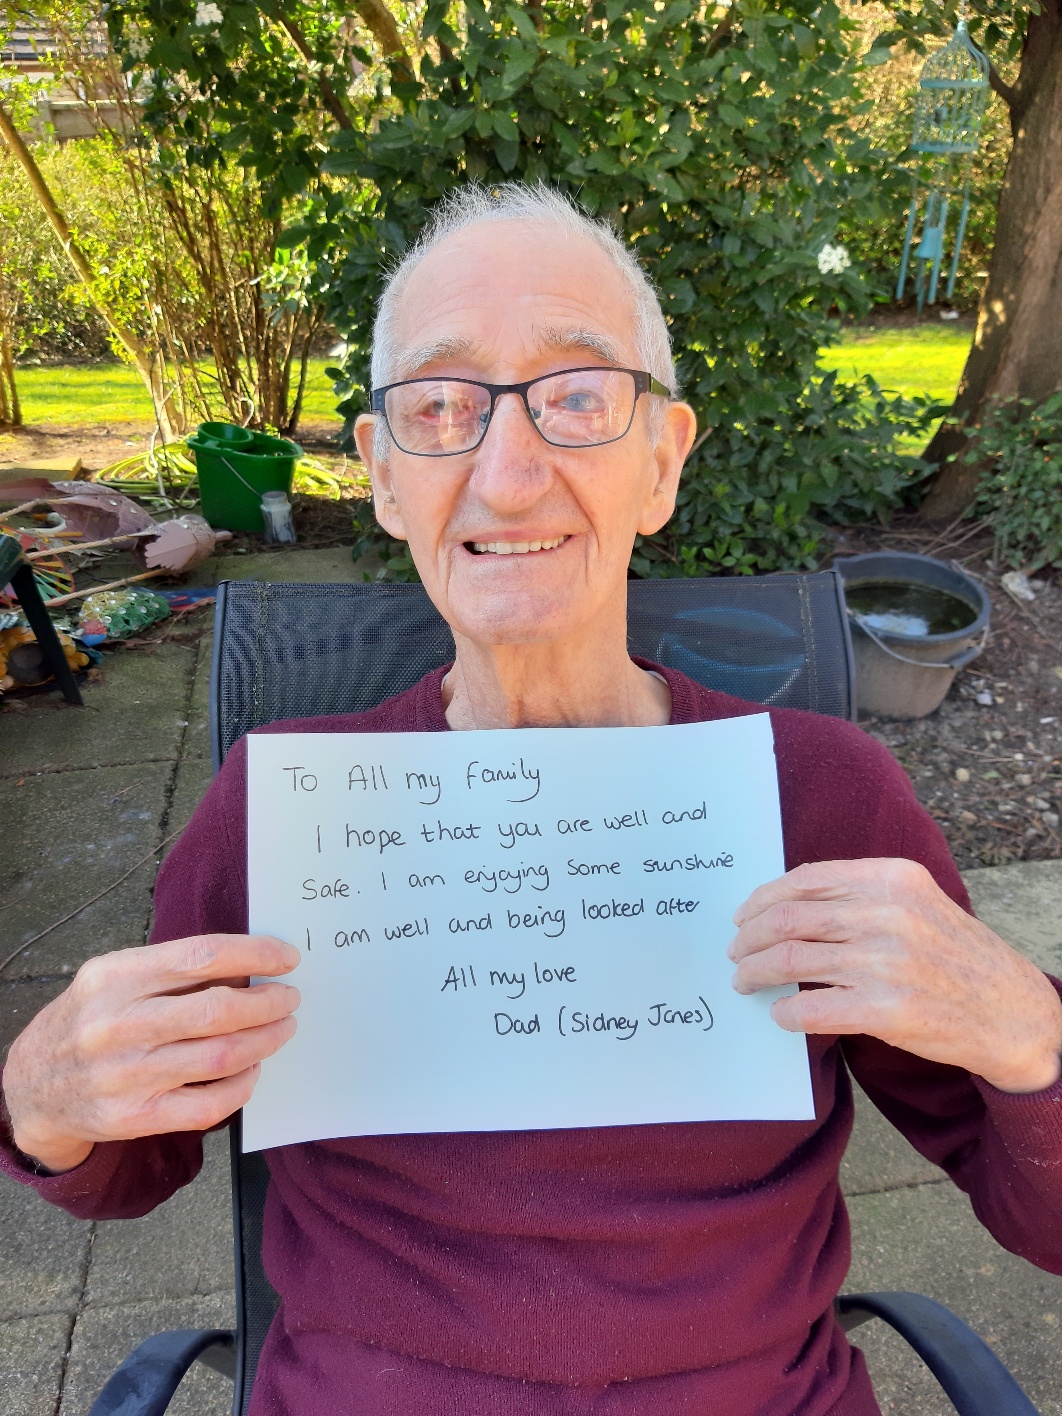 To All my family
I hope that you are well and
Safe. I am enjoying Some sunshine
I am well and being looked after
All my love
Dad (Sidney Jones)